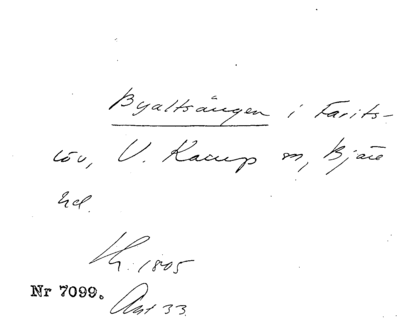 Byaltsången i Farits-
löv, V. Karup sn, Bjäre
hd.
Lh. 1805
Nr 7099.
Akt 33